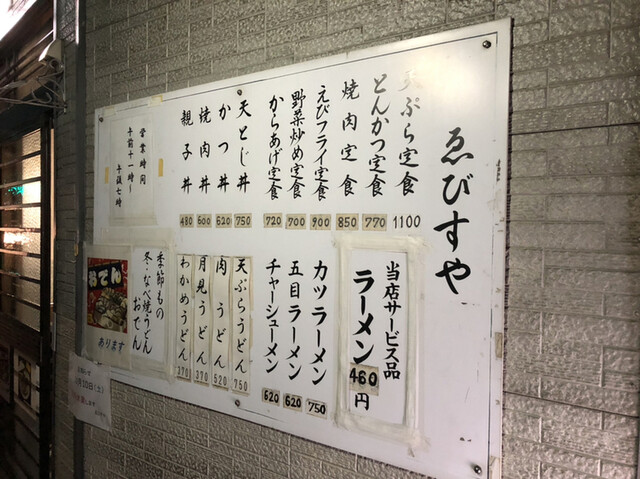 ゑびすや
天ぷら定食 1100
とんかつ定食 770
焼肉定食 850
えびフライ定食 900
野菜炒め定食 700
からあげ定食 720
天とじ丼 750
かつ丼 620
焼肉丼 600
親子丼 480
営業時間
午前十一時〜
午後七時
当店サービス品
ラーメン 460円
カツラーメン 750
五目ラーメン 620
チャーシューメン 620
天ぷらうどん 750
肉うどん 520
月見うどん 370
わかめうどん 370
季節もの
冬・なべ焼うどん
おでん
あります
おでん